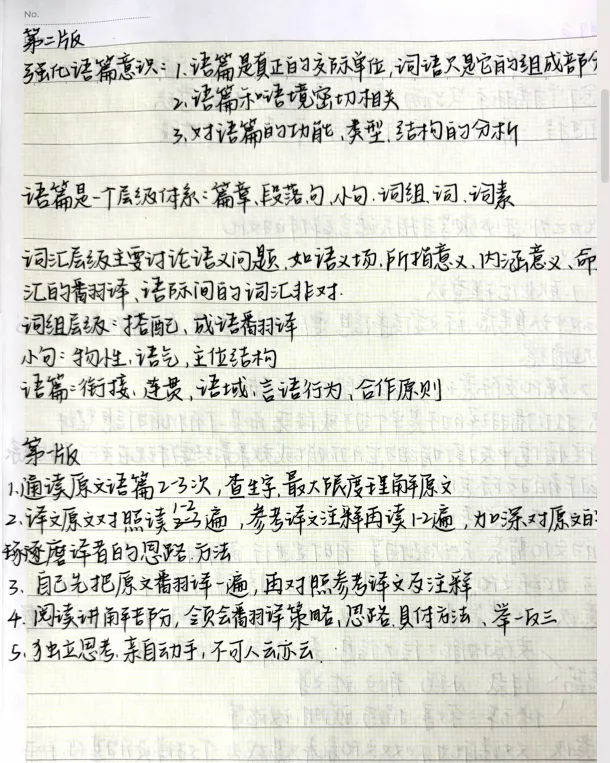 No.
第二版
强化语篇意识：1.语篇是真正的交际单位，词语只是它的组成部分
2.语篇和语境密切相关
3.对语篇的功能、类型、结构的分析
语篇是一个层级体系：篇章、段落、句、小句、词组、词、词素
词汇层级主要讨论语义问题，如语义场，所指意义、内涵意义、命
汇的翻译、语际间的词汇非对.
词组层级：搭配、成语翻译
小句：物性、语气、主位结构
语篇：衔接、连贯、语域、言语行为、合作原则
第一版
1.通读原文语篇2-3次，查生字，最大限度理解原文
2.译文原文对照读1-2遍，参考译文注释再读1-2遍，加深对原文的
琢磨译者的思路、方法
3.自己先把原文翻译一遍，再对照参考译文及注释
4.阅读讲解部分，领会翻译策略、思路、具体方法、举一反三
5.独立思考，亲自动手，不可人云亦云.